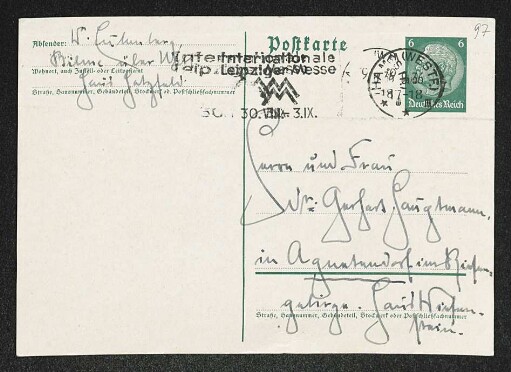 97
Absender: W. Eulenberg,
Wohnort, auch Zustell- oder Leitpostamt
Haus Hatzfeld.
Straße, Hausnummer, Gebäudeteil, Stockwerk od. Postschließfachnummer
Postkarte
Internationale
Leipziger Messe
30.VIII.-3.IX.
(WESTF)
17-18
6 6
Deutsches Reich
Herrn und Frau
Dr. Gerhart Hauptmann,
in Agnetendorf im Riesen-
gebirge. Haus Wiesen-
stein.
Straße, Hausnummer, Gebäudeteil, Stockwerk oder Postschließfachnummer